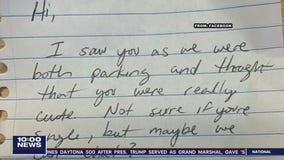 FROM: FACEBOOK
Hi,
I saw you as we were
both parking and thought
that you were really
cute. Not sure if you're
single, but maybe we
10:00
NEWS
NES DAYTONA 500 AFTER PRES. TRUMP SERVED AS GRAND MARSHAL, GAVE 'S
NATIONAL